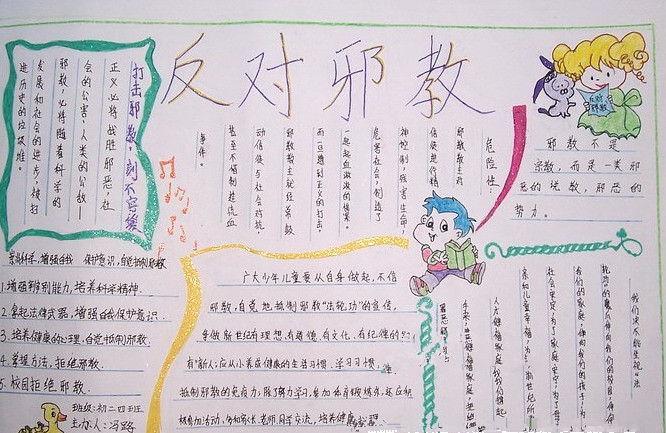 反对邪教
打击邪教,刻不容缓
正义必将战胜邪恶,社
会的公害、人类的公敌——
邪教,必将随着科学的
发展和社会的进步,被扫
进历史的垃圾堆。
危险性:
邪教教主对
信徒进行精
神控制,残害生命,
危害社会,制造了
一起起血淋淋的惨案。
而一旦遭到正义的打击,
邪教教主就经常鼓
动信徒与社会对抗,
甚至不惜制造流血
事件。
反对
邪教
邪教不是
宗教,而是一类邪
恶的说教,邪恶的
势力。
崇尚科学,增强自我保护意识,自觉抵制邪教
1.增强辨别能力,培养科学精神.
2.拿起法律武器,增强自我保护意识.
3.培养健康的心理,自觉抵制邪教.
4.掌握方法,拒绝邪教.
5.校园拒绝邪教.
班级:初二四班
主办人:冯路
广大少年儿童要从自身做起,不信
邪教,自觉地抵制邪教“法轮功”的宣传,
争做新世纪有理想、有道德、有文化、有纪律的
有”新人;应从小养成健康的生活习惯、学习习惯,
抵制邪教的免疫力;除了努力学习,参加体育锻炼外,还应积
极参加活动,多和家长、老师、同学交流,培养健康心理.
我们决不能坐视“法
我们的家庭,伸向我们的孩子,为
社会安定,为了家庭